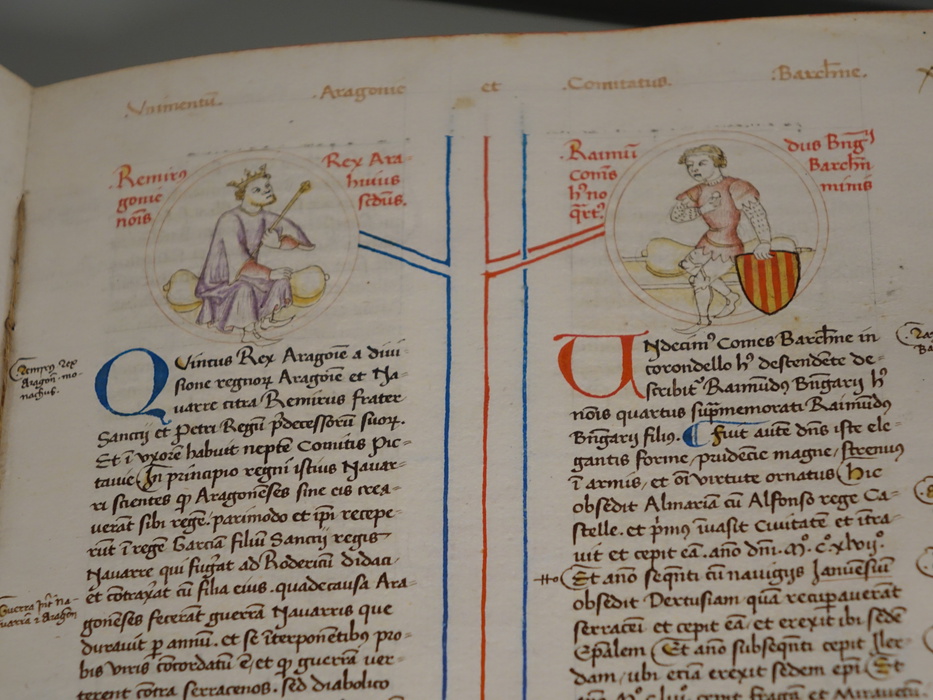 Aragonie et Comitatus. Barchne.
Remirus Rex Ara-
gonie huius
nois sedus.
Raimu dus Bngi
Comes Barchn
h' no minis
qrt'
Remirus rex
Aragon mo-
nachus.
Quintus Rex Aragoie a diui
sione regnor Aragoie et Na-
uarre citra Remirus frater
Sanctij et Petri Regu pdecessoru suor.
Et i uxore habuit nepte Comitis Pic-
tauie In principio regni istius Nauar-
ri scientes q Aragoneses sine eis crea-
uerat sibi rege. parimodo et ipi recepe-
rut i rege Garcia filiu Sanctij regis
Nauarre qui fugrat ad Rodericu didaci
et cotraxat cu filia eius. quadecausa Ara-
goneses fecerat guerra Nauarris que
durauit p annu. et se iterponetibo pro-
bis uiris cocordatu e et q guerra uer-
terent cotra serracenos. sed diabolico
Guerra int Na-
uarra z Aragon
Undecim' Comes Barchne in
corondello h' descendete de-
scribit Raimudus Bngarij h'
nois quartus supmemorati Raimudus
Bngarij filius. Fuit aute dns iste ele-
gantis forme, prudecie magne, strenuus
i armis, et oi virtute ornatus Hic
obsedit Almaria cu Alfonso rege Ca-
stelle. et pmus iuasit Ciuitate et itra-
uit et cepit ea. ano dni. Mo. Co. xlvijo.
Et ano seqnti cu nauigijs Ianuesiu
obsedit Dertusiam qua recupauerat
serraceni et cepit ea et erexit ibi sede
Epalem Et ano subsequnti cepit Iler-
dam, ubi etia erexit sedem epi Et